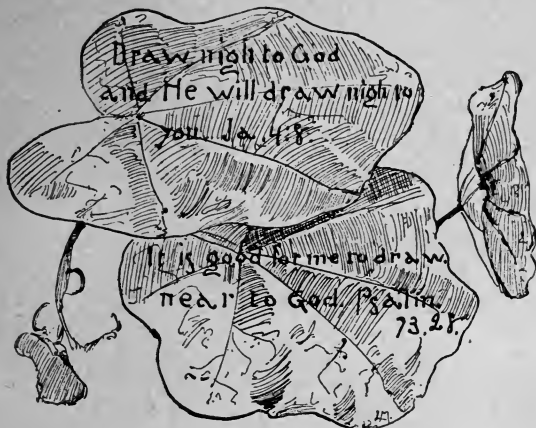 Draw nigh to God
and He will draw nigh to
you. Ja. 4:8.
It is good for me to draw
near to God. Psalm.
73.28.